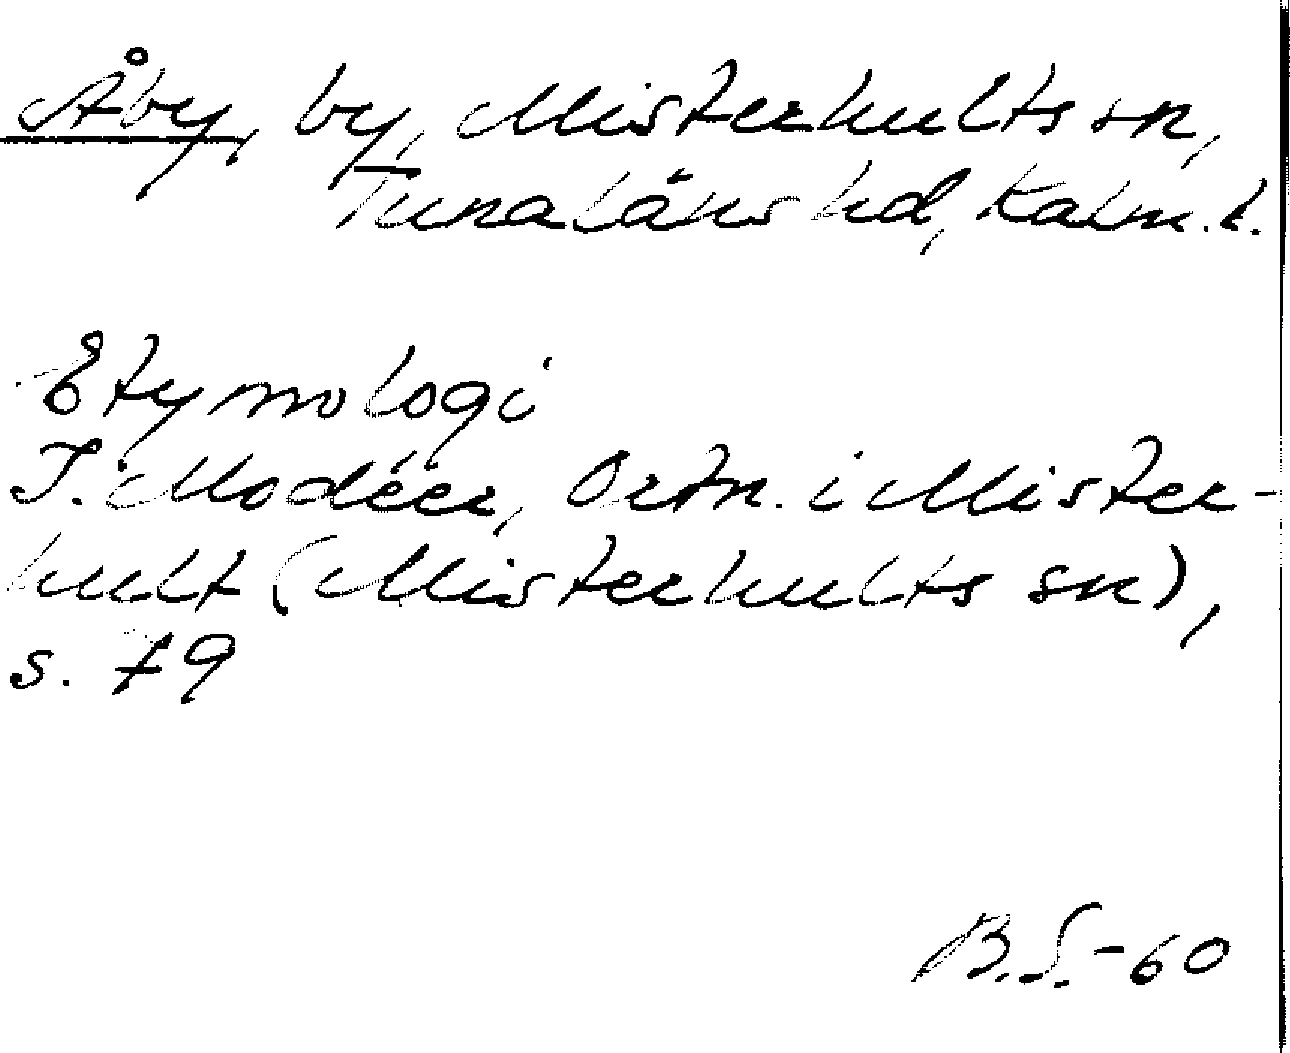 Åby, by, Misterhults sn,
Tunaläns hd, Kalm. l.
Etymologi
I. Modéer, Ortn. i Mister-
hult (Misterhults sn),
s. 79
B.S.-60